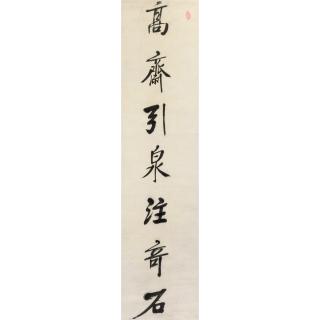 高齋引泉注奇石